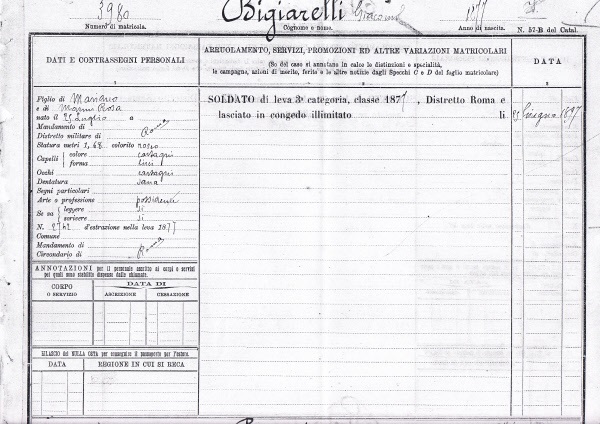 3980 Bigiarelli Giacomo 1877
Numero di matricola. Cognome e nome. Anno di nascita. N. 57-B del Catal.
DATI E CONTRASSEGNI PERSONALI
ARRUOLAMENTO, SERVIZI, PROMOZIONI ED ALTRE VARIAZIONI MATRICOLARI
(Se del caso si annotano in calce le distinzioni e specialità,
le campagne, azioni di merito, ferite e le altre notizie dagli Specchi C e D del foglio matricolare)
DATA
1 2 3
Figlio di Mariano
e di Marini Rosa
nato il 25 Luglio a
Mandamento di
Distretto militare di Roma
Statura metri 1, 68 colorito roseo
Capelli colore castagni
forma lisci
Occhi castagni
Dentatura sana
Segni particolari
Arte o professione possidente
Se sa leggere si
scrivere si
N. 2762 d'estrazione nella leva 1877
Comune
Mandamento di
Circondario di Roma
SOLDATO di leva 3ª categoria, classe 1877, Distretto Roma e
lasciato in congedo illimitato li 25 Giugno 1897
ANNOTAZIONI per il personale ascritto ai corpi e servizi
pei quali sono stabilite dispense dalle chiamate.
CORPO
O SERVIZIO
DATA DI
ASCRIZIONE CESSAZIONE
RILASCIO del NULLA OSTA per conseguire il passaporto per l'estero.
DATA REGIONE IN CUI SI RECA